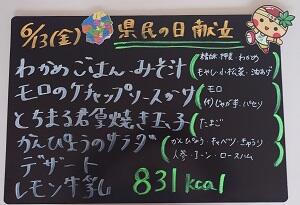 6/13(金) 県民の日献立
わかめごはん・みそ汁
モロのケチャップソースがけ
とちまる君皇焼き玉子
かんぴょうのサラダ
デザート
レモン牛乳
精白米 押麦・わかめ
もやし・小松菜・油あげ
モロ
付)じゃが芋・パセリ
たまご
かんぴょう・キャベツ・きゅうり
人参・コーン・ロースハム
831kcal